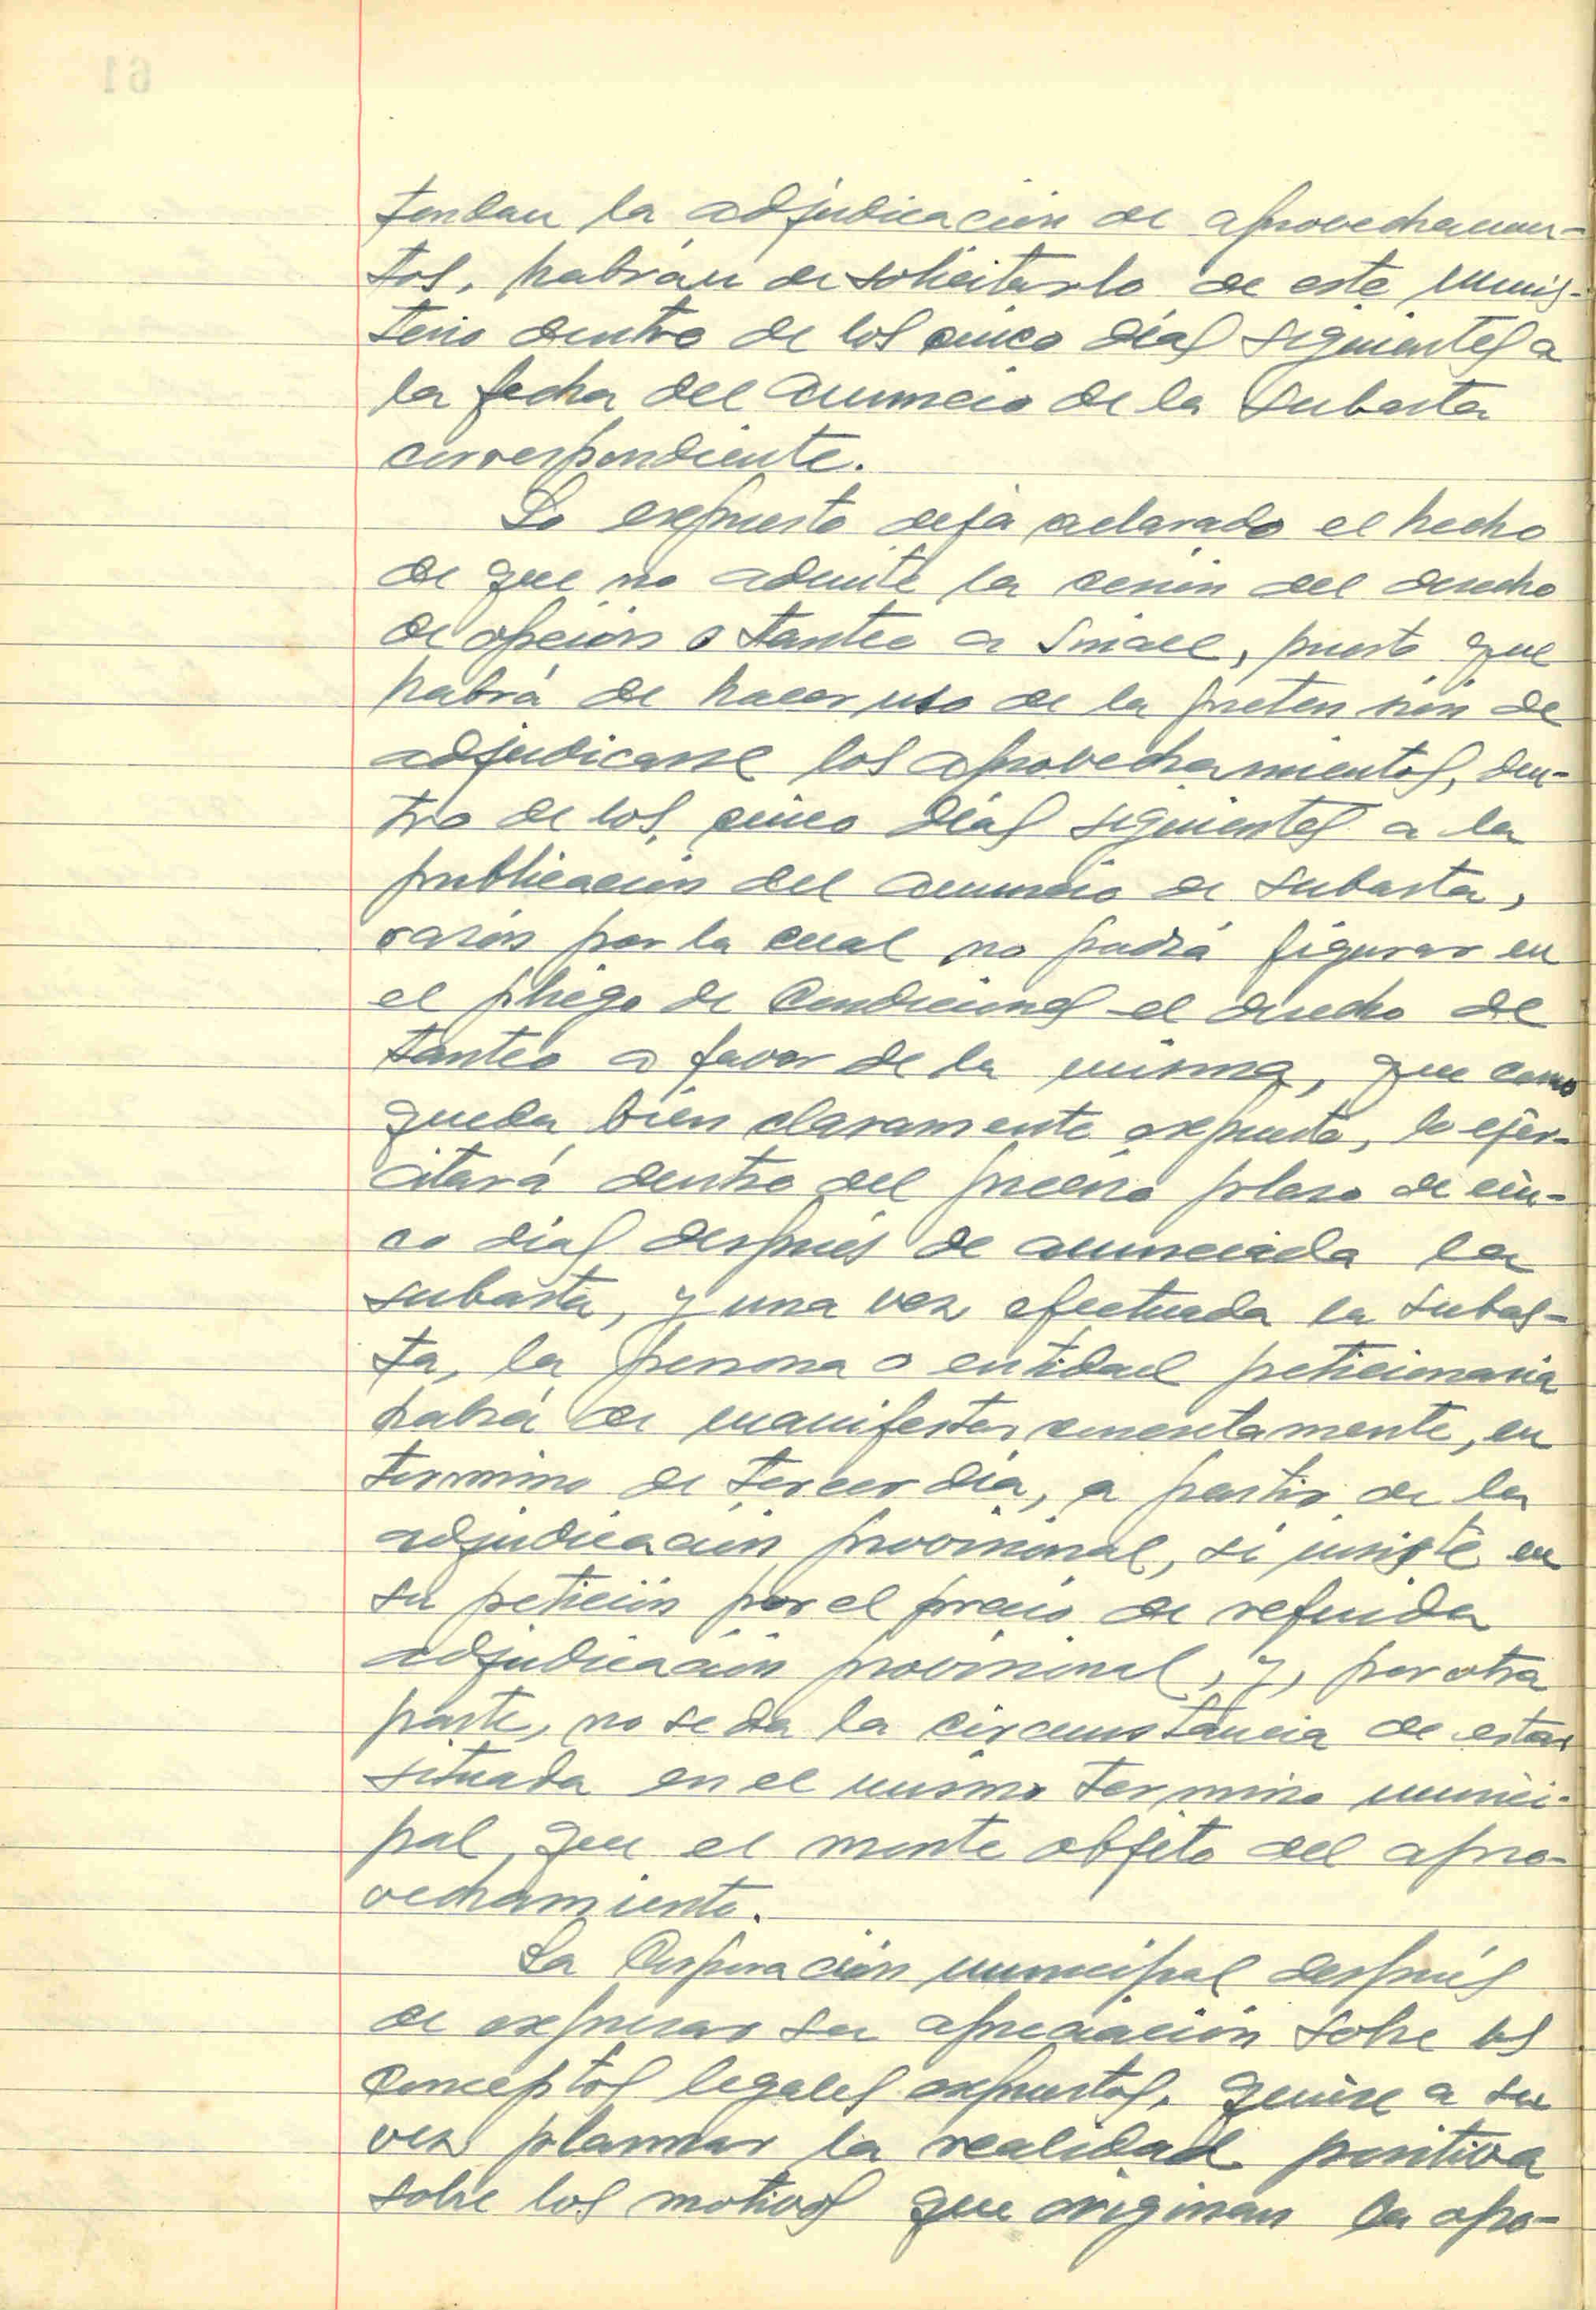 tendan la adjudicación de aprovechamien-
tos, habrán de solicitarlo de este Minis-
terio dentro de los cinco días siguientes a
la fecha del anuncio de la subasta
correspondiente.
Lo expuesto deja aclarado el hecho
de que no admite la cesión del derecho
de opción o tanteo a Sniace, puesto que
habrá de hacer uso de la pretensión de
adjudicarse los aprovechamientos, den-
tro de los cinco días siguientes a la
publicación del anuncio de subasta,
razón por la cual no podrá figurar en
el pliego de Condiciones el derecho de
tanteo a favor de la misma, que como
queda bien claramente expuesto, lo ejer-
citará dentro del preciso plazo de cin-
co días después de anunciada la
subasta, y una vez efectuada la subas-
ta, la persona o entidad peticionaria
habrá de manifestar concretamente, en
termino de tercer día, a partir de la
adjudicación provisional, si insiste en
su petición por el precio de referida
adjudicación provisional, y, por otra
parte, no se da la circunstancia de estar
situada en el mismo termino munici-
pal, que el monte objeto del apro-
vechamiento.
La Corporación municipal después
de expresar su apreciación sobre los
conceptos legales expuestos, quiere a su
vez plasmar la realidad positiva
sobre los motivos que originan la apo-
61